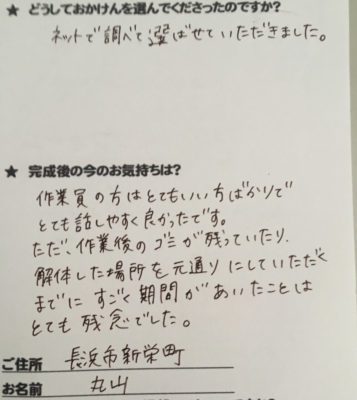 ★ どうしておかけんを選んでくださったのですか？
ネットで調べて選ばせていただきました。
★ 完成後の今のお気持ちは？
作業員の方はとてもいい方ばかりで
とても話しやすく良かったです。
ただ、作業後のゴミが残っていたり、
解体した場所を元通りにしていただく
までにすごく期間があいたことは
とても残念でした。
ご住所 長浜市新栄町
お名前 丸山